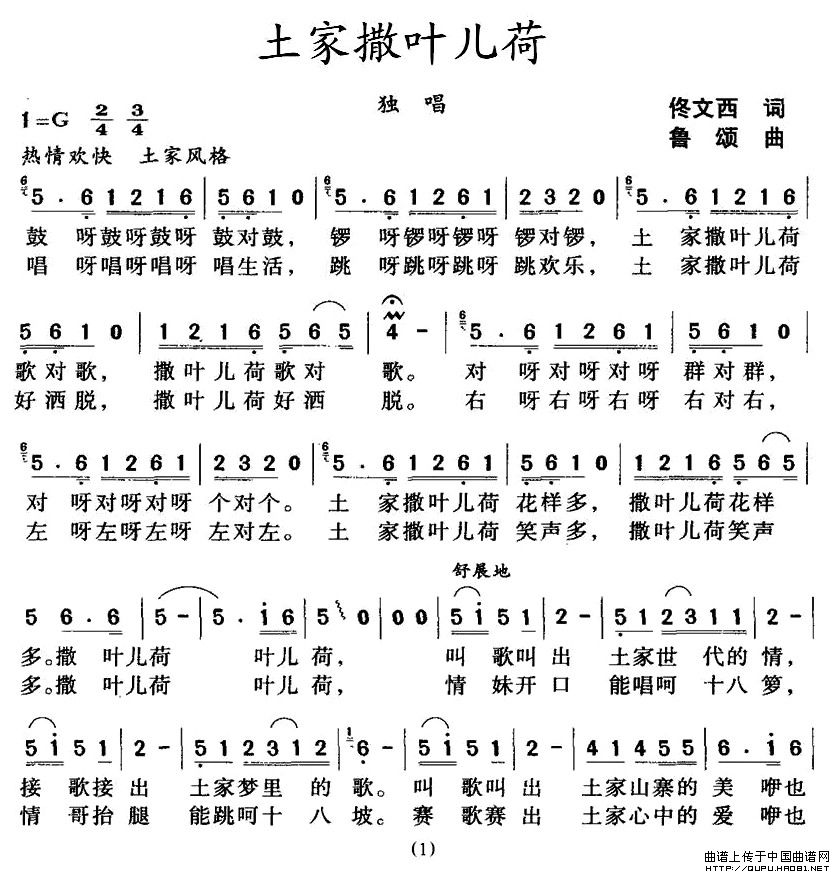 土家撒叶儿荷
独 唱
1=G 2/4 3/4
佟文西 词
鲁 颂 曲
热情欢快 土家风格
5 . 6 1 2 1 6 | 5 6 1 0 | 5 . 6 1 2 6 1 | 2 3 2 0 | 5 . 6 1 2 1 6
鼓 呀鼓呀鼓呀 鼓对鼓, 锣 呀锣呀锣呀 锣对锣, 土 家撒叶儿荷
唱 呀唱呀唱呀 唱生活, 跳 呀跳呀跳呀 跳欢乐, 土 家撒叶儿荷
5 6 1 0 | 1 2 1 6 5 6 5 | 4 - | 5 . 6 1 2 6 1 | 5 6 1 0
歌对歌, 撒叶儿荷歌对 歌。 对 呀对呀对呀 群对群,
好洒脱, 撒叶儿荷好洒 脱。 右 呀右呀右呀 右对右,
5 . 6 1 2 6 1 | 2 3 2 0 | 5 . 6 1 2 1 6 5 6 1 0 | 1 2 1 6 5 6 5
对 呀对呀对呀 个对个。 土 家撒叶儿荷 花样多, 撒叶儿荷花样
左 呀左呀左呀 左对左。 土 家撒叶儿荷 笑声多, 撒叶儿荷笑声
舒展地
5 6 . 6 | 5 - | 5 . i 6 | 5 0 | 0 0 | 5 i 5 1 | 2 - | 5 1 2 3 1 1 | 2 -
多。撒 叶儿荷 叶儿 荷, 叫 歌叫 出 土家世 代的 情,
多。撒 叶儿荷 叶儿 荷, 情 妹开 口 能唱呵 十八 箩,
5 i 5 1 | 2 - | 5 1 2 3 1 2 | 6 - | 5 i 5 1 | 2 - | 4 1 4 5 5 | 6 . i 6
接 歌接 出 土家梦里 的 歌。 叫 歌叫 出 土家山寨的 美 咿也
情 哥抬 腿 能跳呵十 八 坡。 赛 歌赛 出 土家心中的 爱 咿也
(1)
曲谱上传于中国曲谱网
HTTP://QUPU.HAO81.NET